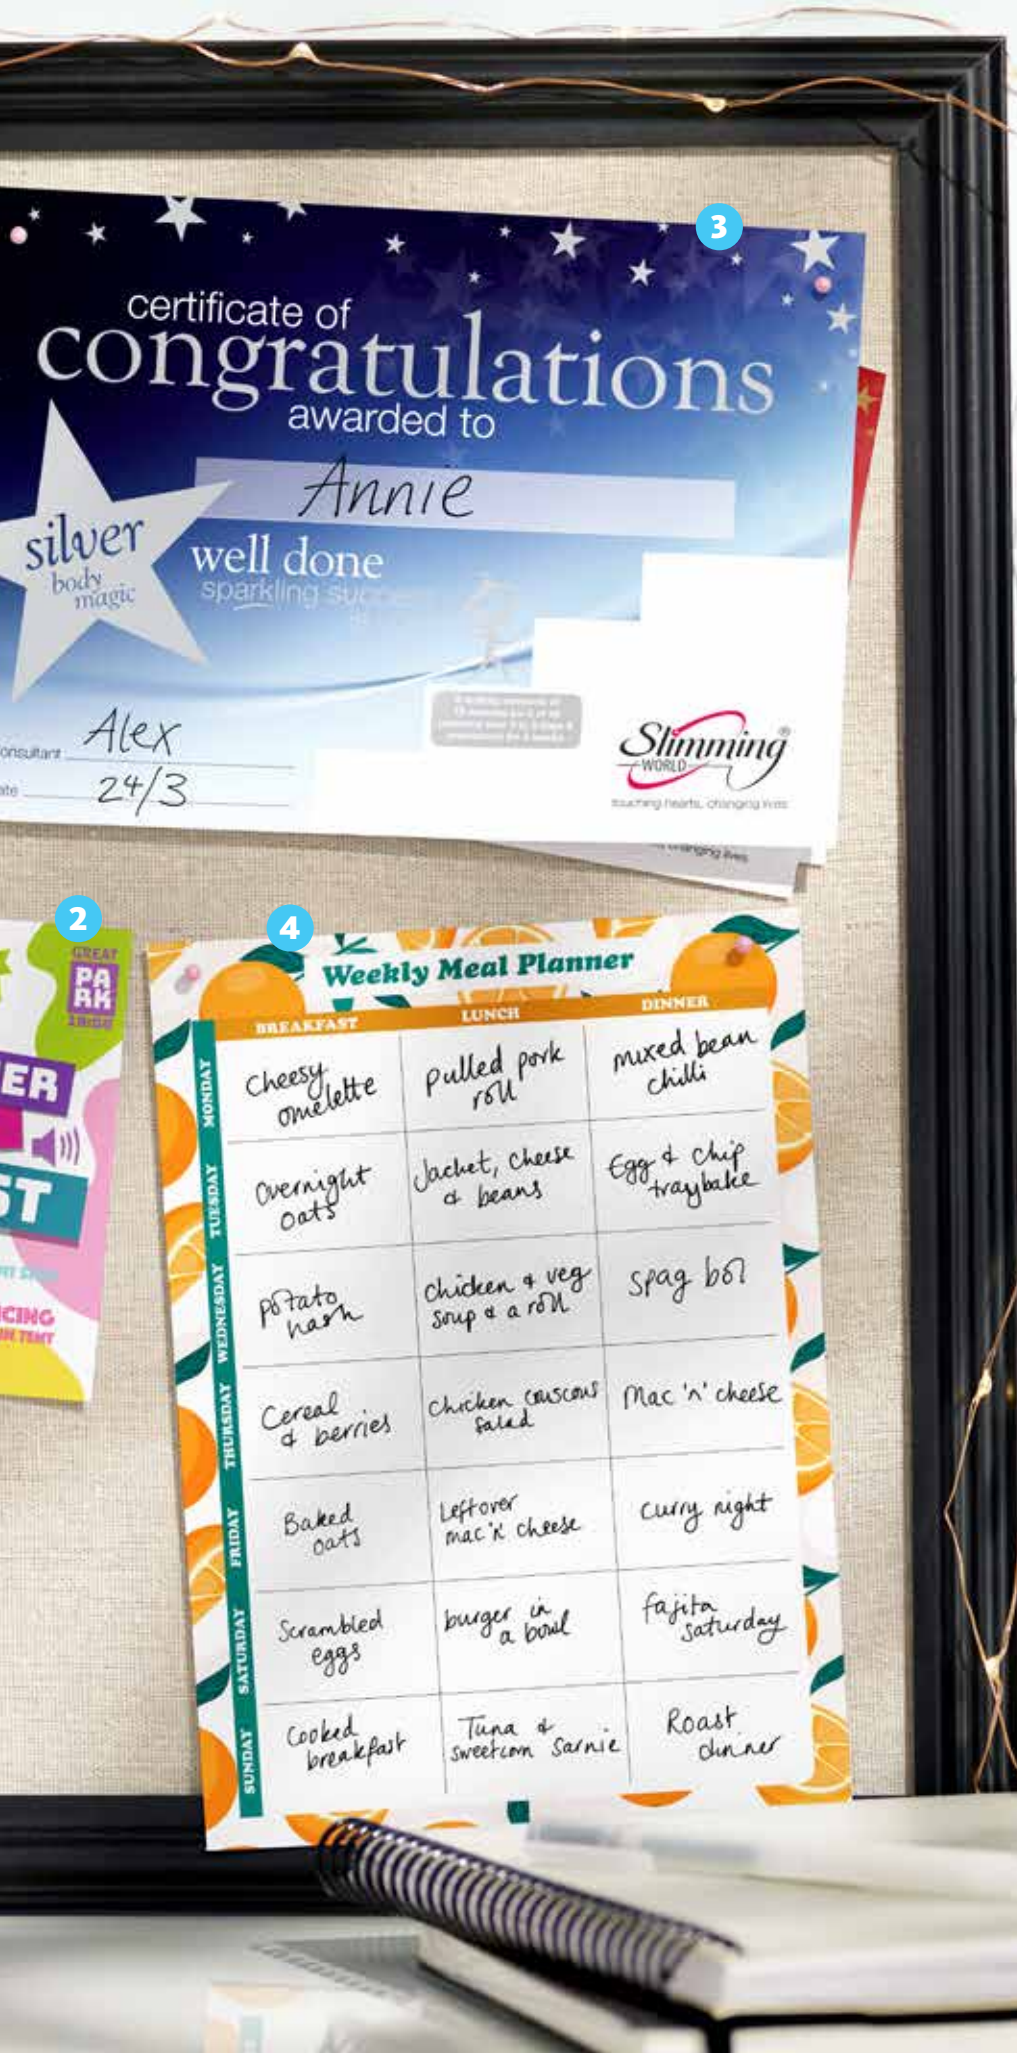 3
certificate of
congratulations
awarded to
Annie
silver
body
magic
well done
sparkling
Alex
24/3
Slimming
WORLD
touching hearts, changing lives
changing lives
2
GREAT
PA
RK
ER
ST
CING
IN TENT
4
Weekly Meal Planner
BREAKFAST LUNCH DINNER
MONDAY
Cheesy
omelette
pulled pork
roll
mixed bean
chilli
TUESDAY
Overnight
oats
Jacket, cheese
& beans
Egg & chip
traybake
WEDNESDAY
potato
hash
chicken & veg
soup & a roll
spag bol
THURSDAY
Cereal
& berries
Chicken couscous
salad
Mac 'n' cheese
FRIDAY
Baked
oats
Leftover
mac 'n' cheese
curry night
SATURDAY
Scrambled
eggs
burger in
a bowl
fajita
saturday
SUNDAY
Cooked
breakfast
Tuna &
sweetcorn sarnie
Roast
dinner